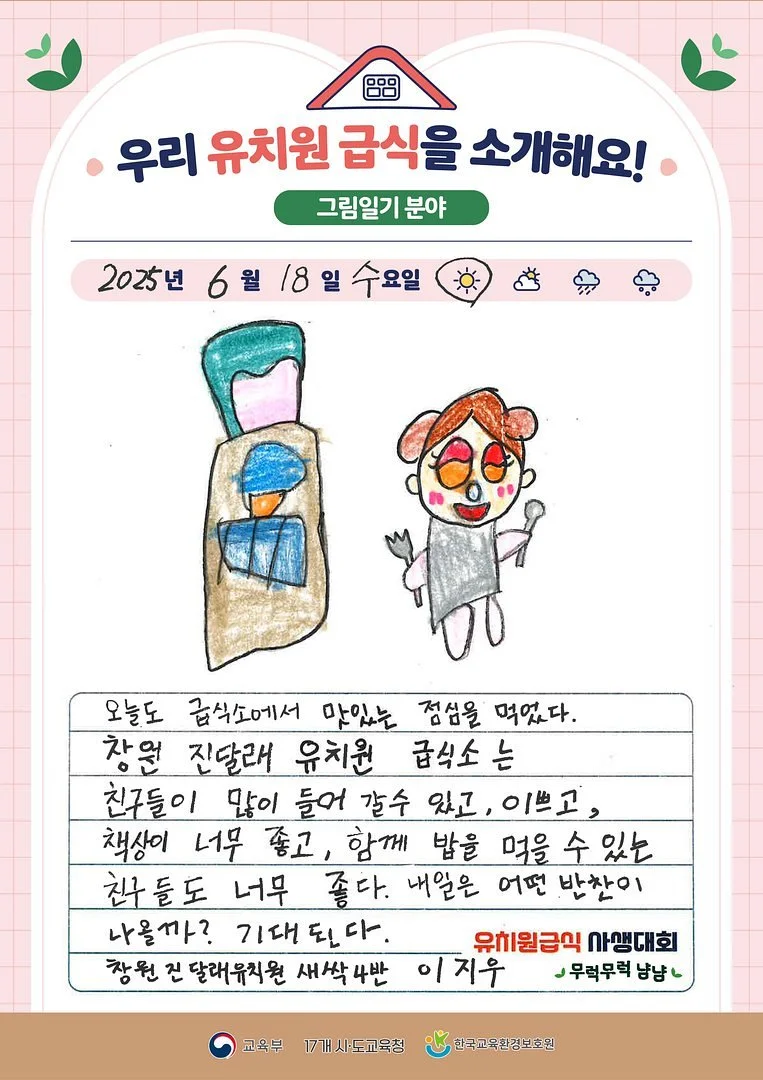 우리 유치원 급식을 소개해요!
그림일기 분야
2025년 6월 18일 수요일
오늘도 급식소에서 맛있는 점심을 먹었다.
창원 진달래 유치원 급식소 는
친구들이 많이 들어 갈수 있고, 이쁘고,
책상이 너무 좋고, 함께 밥을 먹을 수 있는
친구들도 너무 좋다. 내일은 어떤 반찬이
나올까? 기대 된다.
유치원급식 사생대회
무럭무럭 냠냠
창원 진달래유치원 새싹4반 이지우
교육부 17개 시·도교육청 한국교육환경보호원